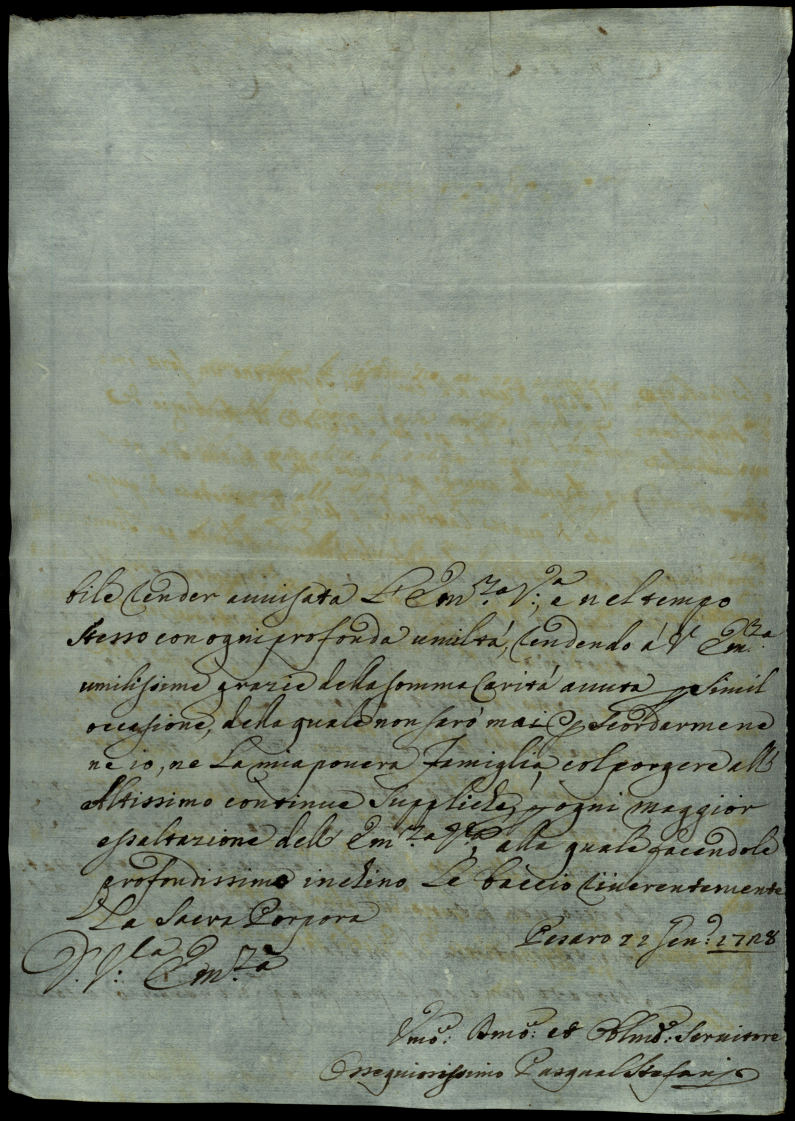 bile render auuisata L'Em.za V:a, e nel tempo
stesso con ogni profonda umiltá, rendendo á V. Em.za
umilissime grazie della somma Caritá auuta p simil
occasione, della quale non saró mai p scordarmene
ne io, ne La mia pouera famiglia, col porgere all'
Altissimo continue Suppliche, p ogni maggior
esaltazione dell' Em.za V:a, alla quale facendole
profondissimo inchino Le baccio riuerentemente
La Sacra Porpora
Pesaro 22 Gen: 1728
D. V: Em.za
Vmo: Dmo: et Oblmo: Seruitore
Ossequiosissimo Pasqual Stefani